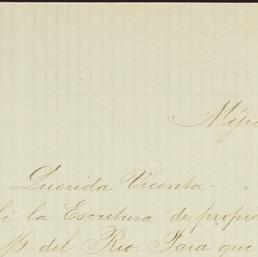 Méjic
Querida Vicenta.
bi la Escritura de propie
P. del Rio. Para que